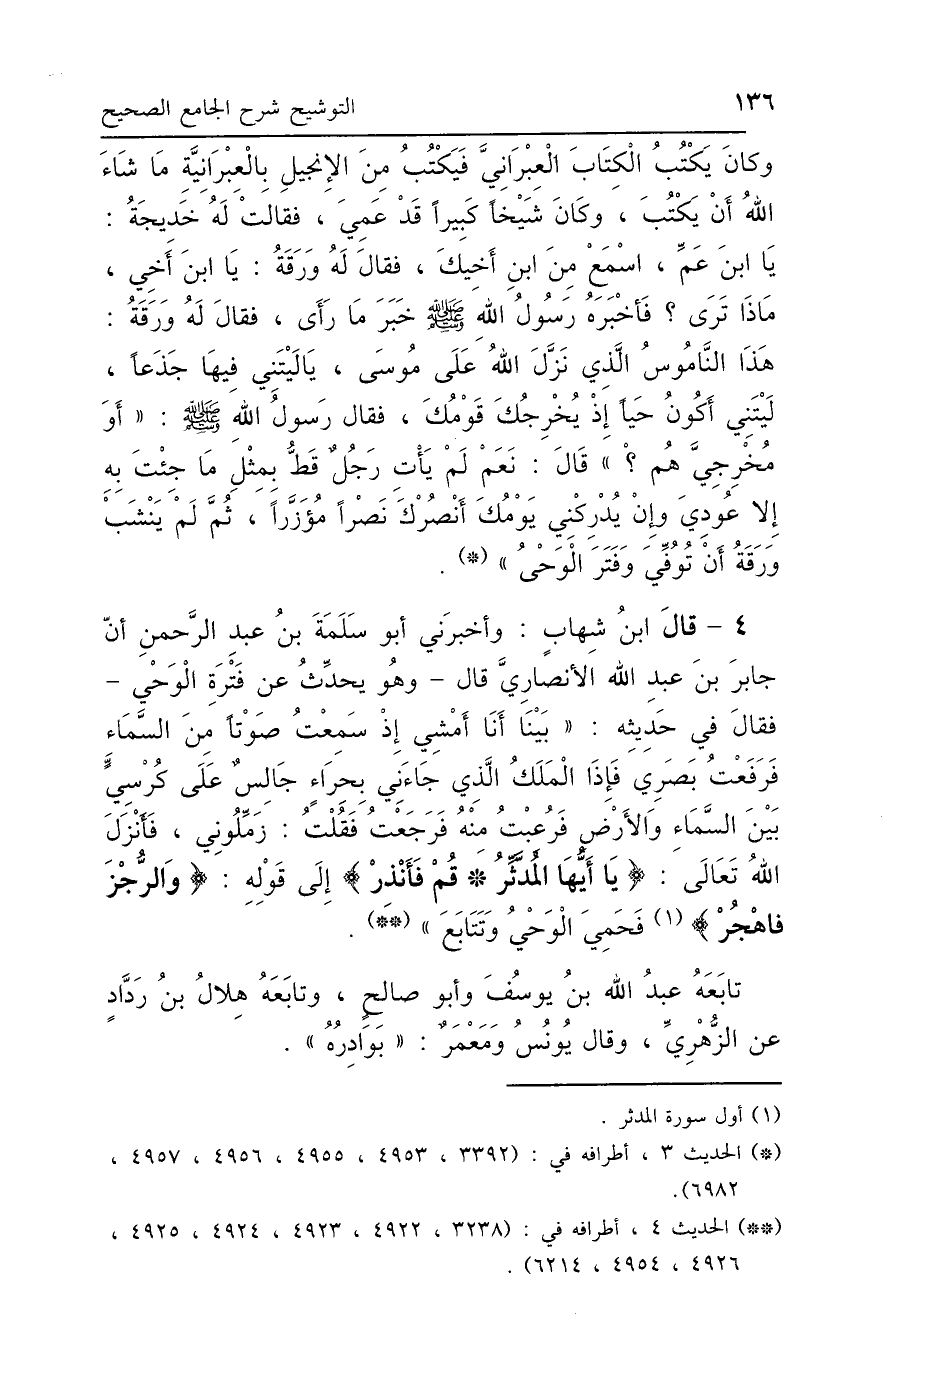 ١٣٦ التوشيح شرح الجامع الصحيح
وكانَ يَكْتُبُ الْكِتَابَ الْعِبْرَانِيَّ فَيَكْتُبُ مِنَ الإنجيلِ بِالْعِبْرَانِيَّةِ مَا شاءَ
اللهُ أَنْ يَكْتُبَ ، وكَانَ شَيْخاً كَبِيراً قَدْ عَمِيَ ، فقالتْ لَهُ خَدِيجَةُ :
يَا ابنَ عَمِّ ، اسْمَعْ مِنَ ابنِ أَخِيكَ ، فقالَ لَهُ وَرَقَةُ : يَا ابنَ أَخِي ،
مَاذَا تَرَى ؟ فَأَخْبَرَهُ رَسُولُ اللهِ ﷺ خَبَرَ مَا رأَى ، فقالَ لَهُ وَرَقَةُ :
هَذَا النَّامُوسُ الَّذِي نَزَّلَ اللهُ عَلَى مُوسَى ، يَالَيْتَنِي فِيهَا جَذَعاً ،
لَيْتَنِي أَكُونُ حَياً إِذْ يُخْرِجُكَ قَوْمُكَ ، فقال رَسولُ اللهِ ﷺ : « أَوَ
مُخْرِجِيَّ هُم ؟ » قَالَ : نَعَمْ لَمْ يَأْتِ رَجُلٌ قَطُّ بِمِثْلِ مَا جِئْتَ بِهِ
إِلا عُودِيَ وَإِنْ يُدْرِكْنِي يَوْمُكَ أَنْصُرْكَ نَصْراً مُؤَزَّراً ، ثُمَّ لَمْ يَنْشَبْ
وَرَقَةُ أَنْ تُوُفِّيَ وَفَتَرَ الْوَحْيُ » (*) .
٤ - قالَ ابنُ شهابٍ : وأخبرَني أبو سَلَمَةَ بنُ عبدِ الرَّحمنِ أنّ
جابرَ بنَ عبدِ اللهِ الأنصاريَّ قال - وهُو يحدِّثُ عن فَتْرَةِ الْوَحْيِ -
فقالَ في حَدِيثِهِ : « بَيْنَا أَنَا أَمْشِي إِذْ سَمِعْتُ صَوْتاً مِنَ السَّمَاءِ
فَرَفَعْتُ بَصَرِي فَإِذَا الْمَلَكُ الَّذِي جَاءَنِي بِحِرَاءٍ جَالِسٌ عَلَى كُرْسِيٍّ
بَيْنَ السَّمَاءِ وَالأَرْضِ فَرُعِبْتُ مِنْهُ فَرَجَعْتُ فَقُلْتُ : زَمِّلُونِي ، فَأَنْزَلَ
اللهُ تَعَالَى : ﴿ يَا أَيُّهَا الْمُدَّثِّرُ * قُمْ فَأَنْذِرْ ﴾ إِلَى قَوْلِهِ : ﴿ وَالرُّجْزَ
فاهْجُرْ ﴾ (١) فَحَمِيَ الْوَحْيُ وَتَتَابَعَ » (**) .
تابَعَهُ عبدُ اللهِ بنُ يوسُفَ وأبو صالحٍ ، وتابَعَهُ هِلالُ بنُ رَدَّادٍ
عنِ الزُّهْرِيِّ ، وقال يُونُسُ وَمَعْمَرٌ : « بَوَادِرُهُ » .
(١) أول سورة المدثر .
(*) الحديث ٣ ، أطرافه في : (٣٣٩٢ ، ٤٩٥٣ ، ٤٩٥٥ ، ٤٩٥٦ ، ٤٩٥٧ ،
٦٩٨٢).
(**) الحديث ٤ ، أطرافه في : (٣٢٣٨ ، ٤٩٢٢ ، ٤٩٢٣ ، ٤٩٢٤ ، ٤٩٢٥ ،
٤٩٢٦ ، ٤٩٥٤ ، ٦٢١٤) .